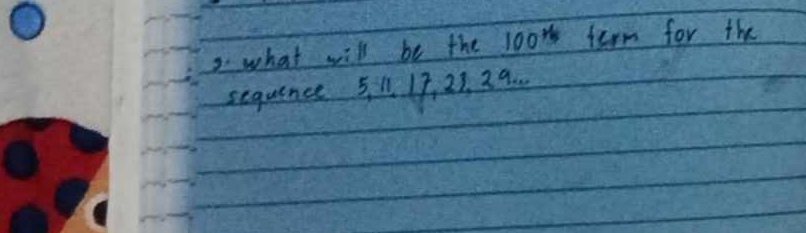 2. what will be the 100th term for the
sequence 5, 11, 17, 23, 29...